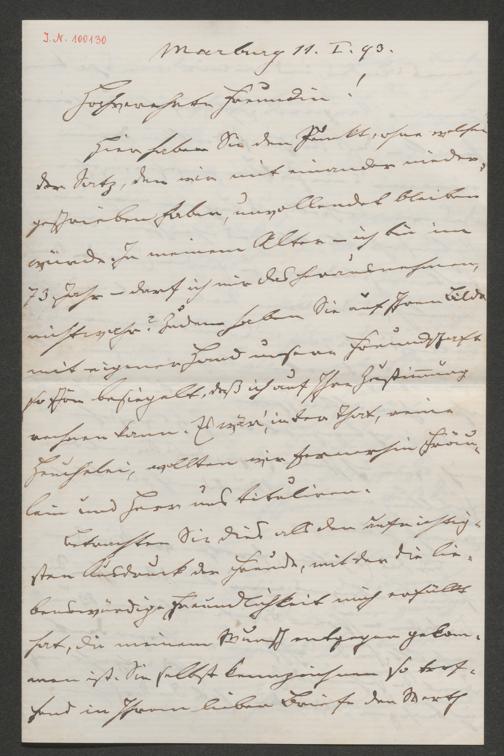 J.N. 100130
Marburg 11. I. 93.
Hochverehrte Freundin!
Hier haben Sie den Punkt, ohne welchen
der Satz, den wir mit einander nieder-
geschrieben haben, unvollendet bleiben
würde. Zu meinem Alter – ich bin im
73 Jahr – darf ich mir das herausnehmen,
nicht wahr? Zudem haben Sie auf Ihrem Bilde
mit eigener Hand unsere Freundschaft
so schön besiegelt, daß ich auf Ihre Zustimmung
rechnen kann. Es wär', in der That, reine
Heuchelei, wollten wir fernerhin Fräu-
lein und Herr uns tituliren.
Betrachten Sie dies als den aufrichtig-
sten Ausdruck der Freude, mit der die lie-
benswürdige Freundlichkeit mich erfüllt
hat, die meinem Wunsch entgegen gekom-
men ist. Sie selbst kennzeichnen so tref-
fend in Ihrem lieben Briefe den Werth